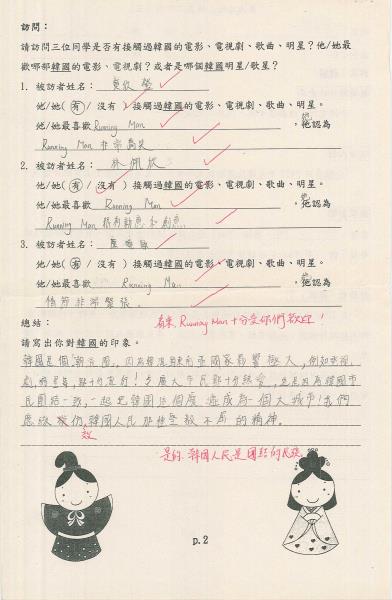 訪問：
請訪問三位同學是否有接觸過韓國的電影、電視劇、歌曲、明星？他/她最
歡哪部韓國的電影、電視劇？或者是哪個韓國明星/歌星？
1. 被訪者姓名：
他/她(有/沒有)接觸過韓國的電影、電視劇、歌曲、明星。
他/她最喜歡 Running Man 。他認為
Running Man 非常搞笑
2. 被訪者姓名：
他/她(有/沒有)接觸過韓國的電影、電視劇、歌曲、明星。
他/她最喜歡 Running Man 。他認為
Running Man 很有創意
3. 被訪者姓名：
他/她(有/沒有)接觸過韓國的電影、電視劇、歌曲、明星。
他/她最喜歡 Running Man 。他認為
情節非常緊張。
總結：
看來 Running Man 十分受你們歡迎！
請寫出你對韓國的印象。
韓國是個 因為韓 國家影響極大，例如
劇、明星 都十分流行！ 市民都十分 是因為韓國市
民團結一致，一起把韓國這個 成為一個大城市！我們
應該 韓國人民那種堅毅不 的精神。
是的，韓國人民是團結的民族。
p.2